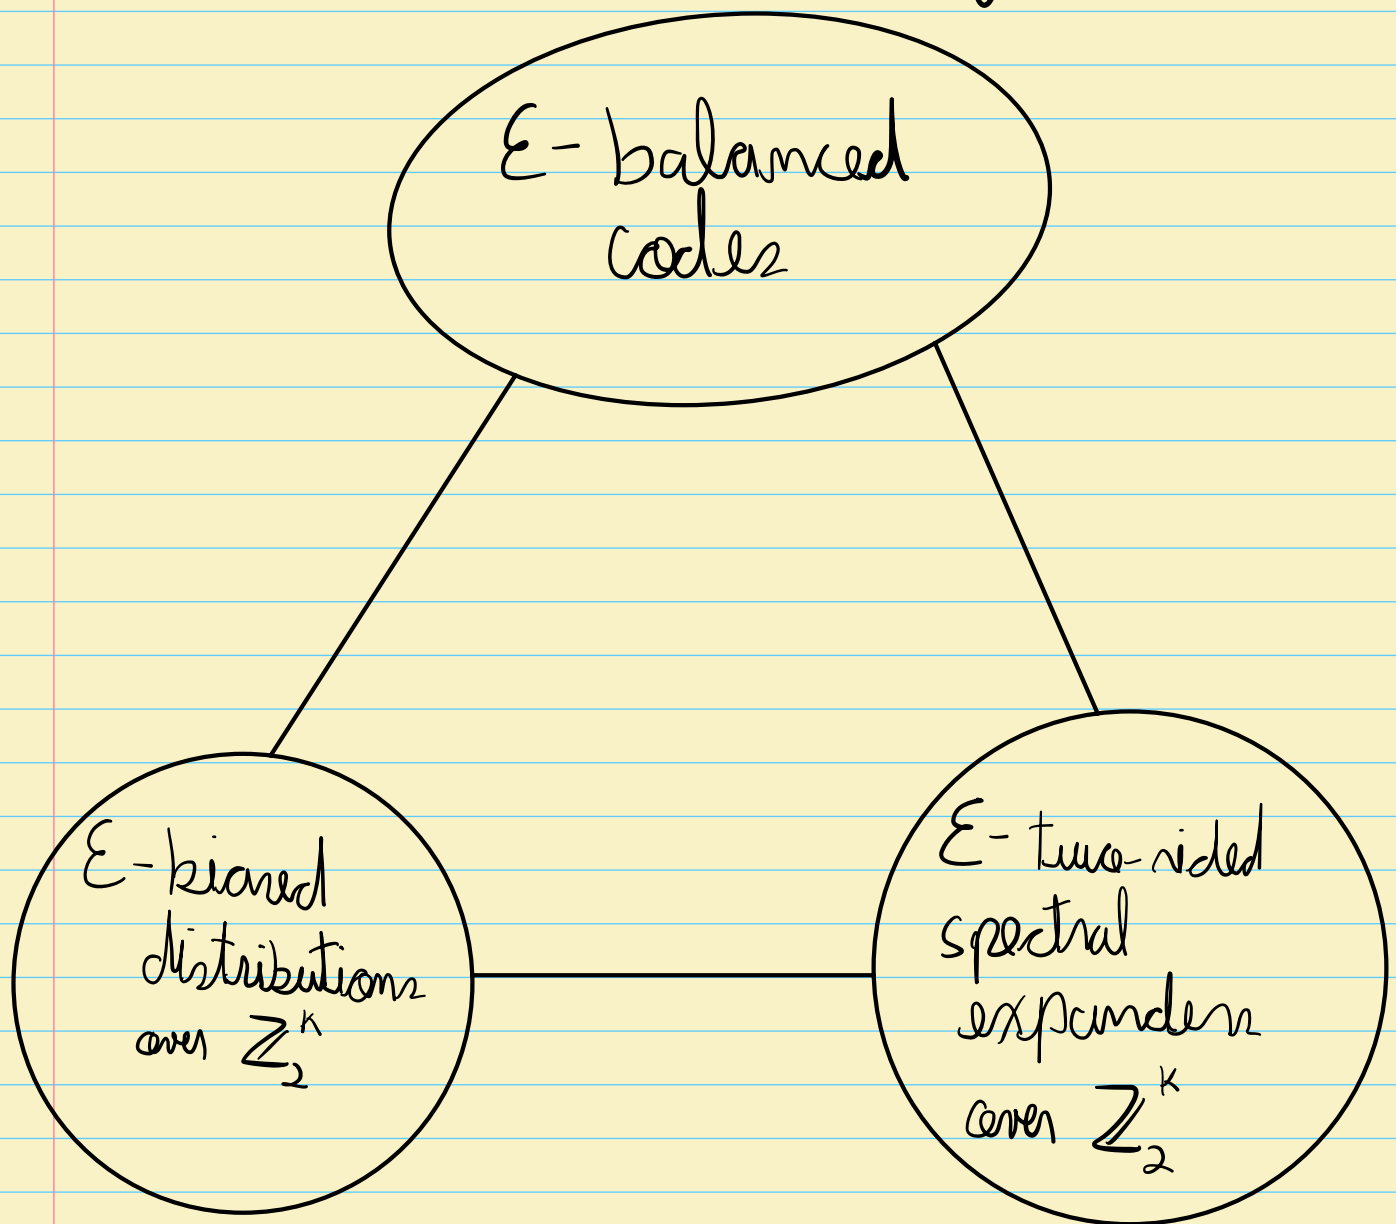 ε-balanced
codes
ε-biased
distributions
over ℤ₂ᵏ
ε-two-sided
spectral
expanders
over ℤ₂ᵏ